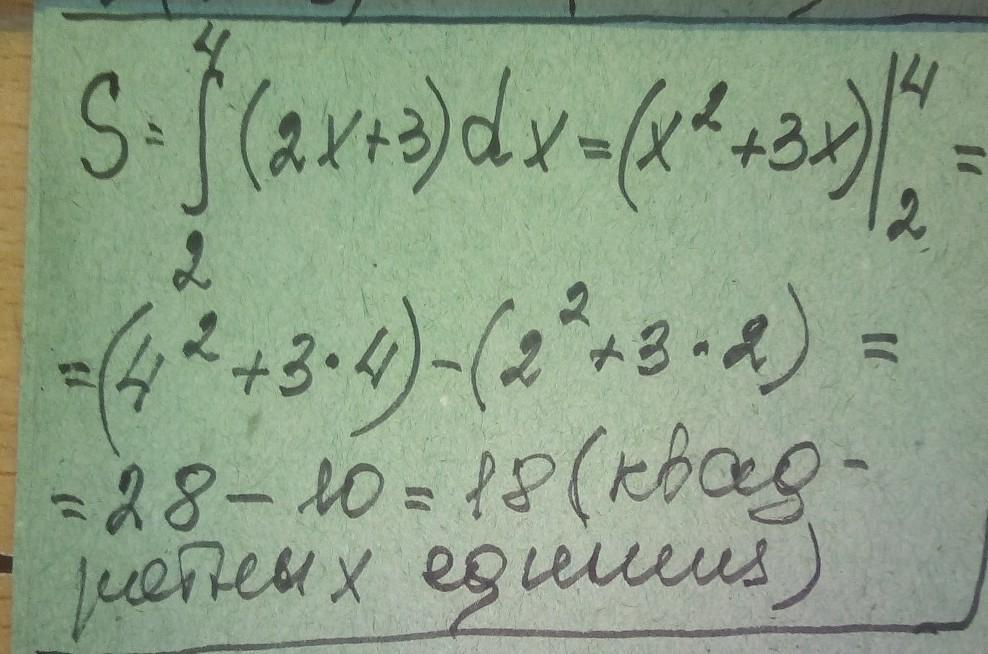 S = ∫₂⁴ (2x+3) dx = (x² + 3x) |₂⁴ =
= (4² + 3·4) - (2² + 3·2) =
= 28 - 10 = 18 (квад-
ратных единиц)